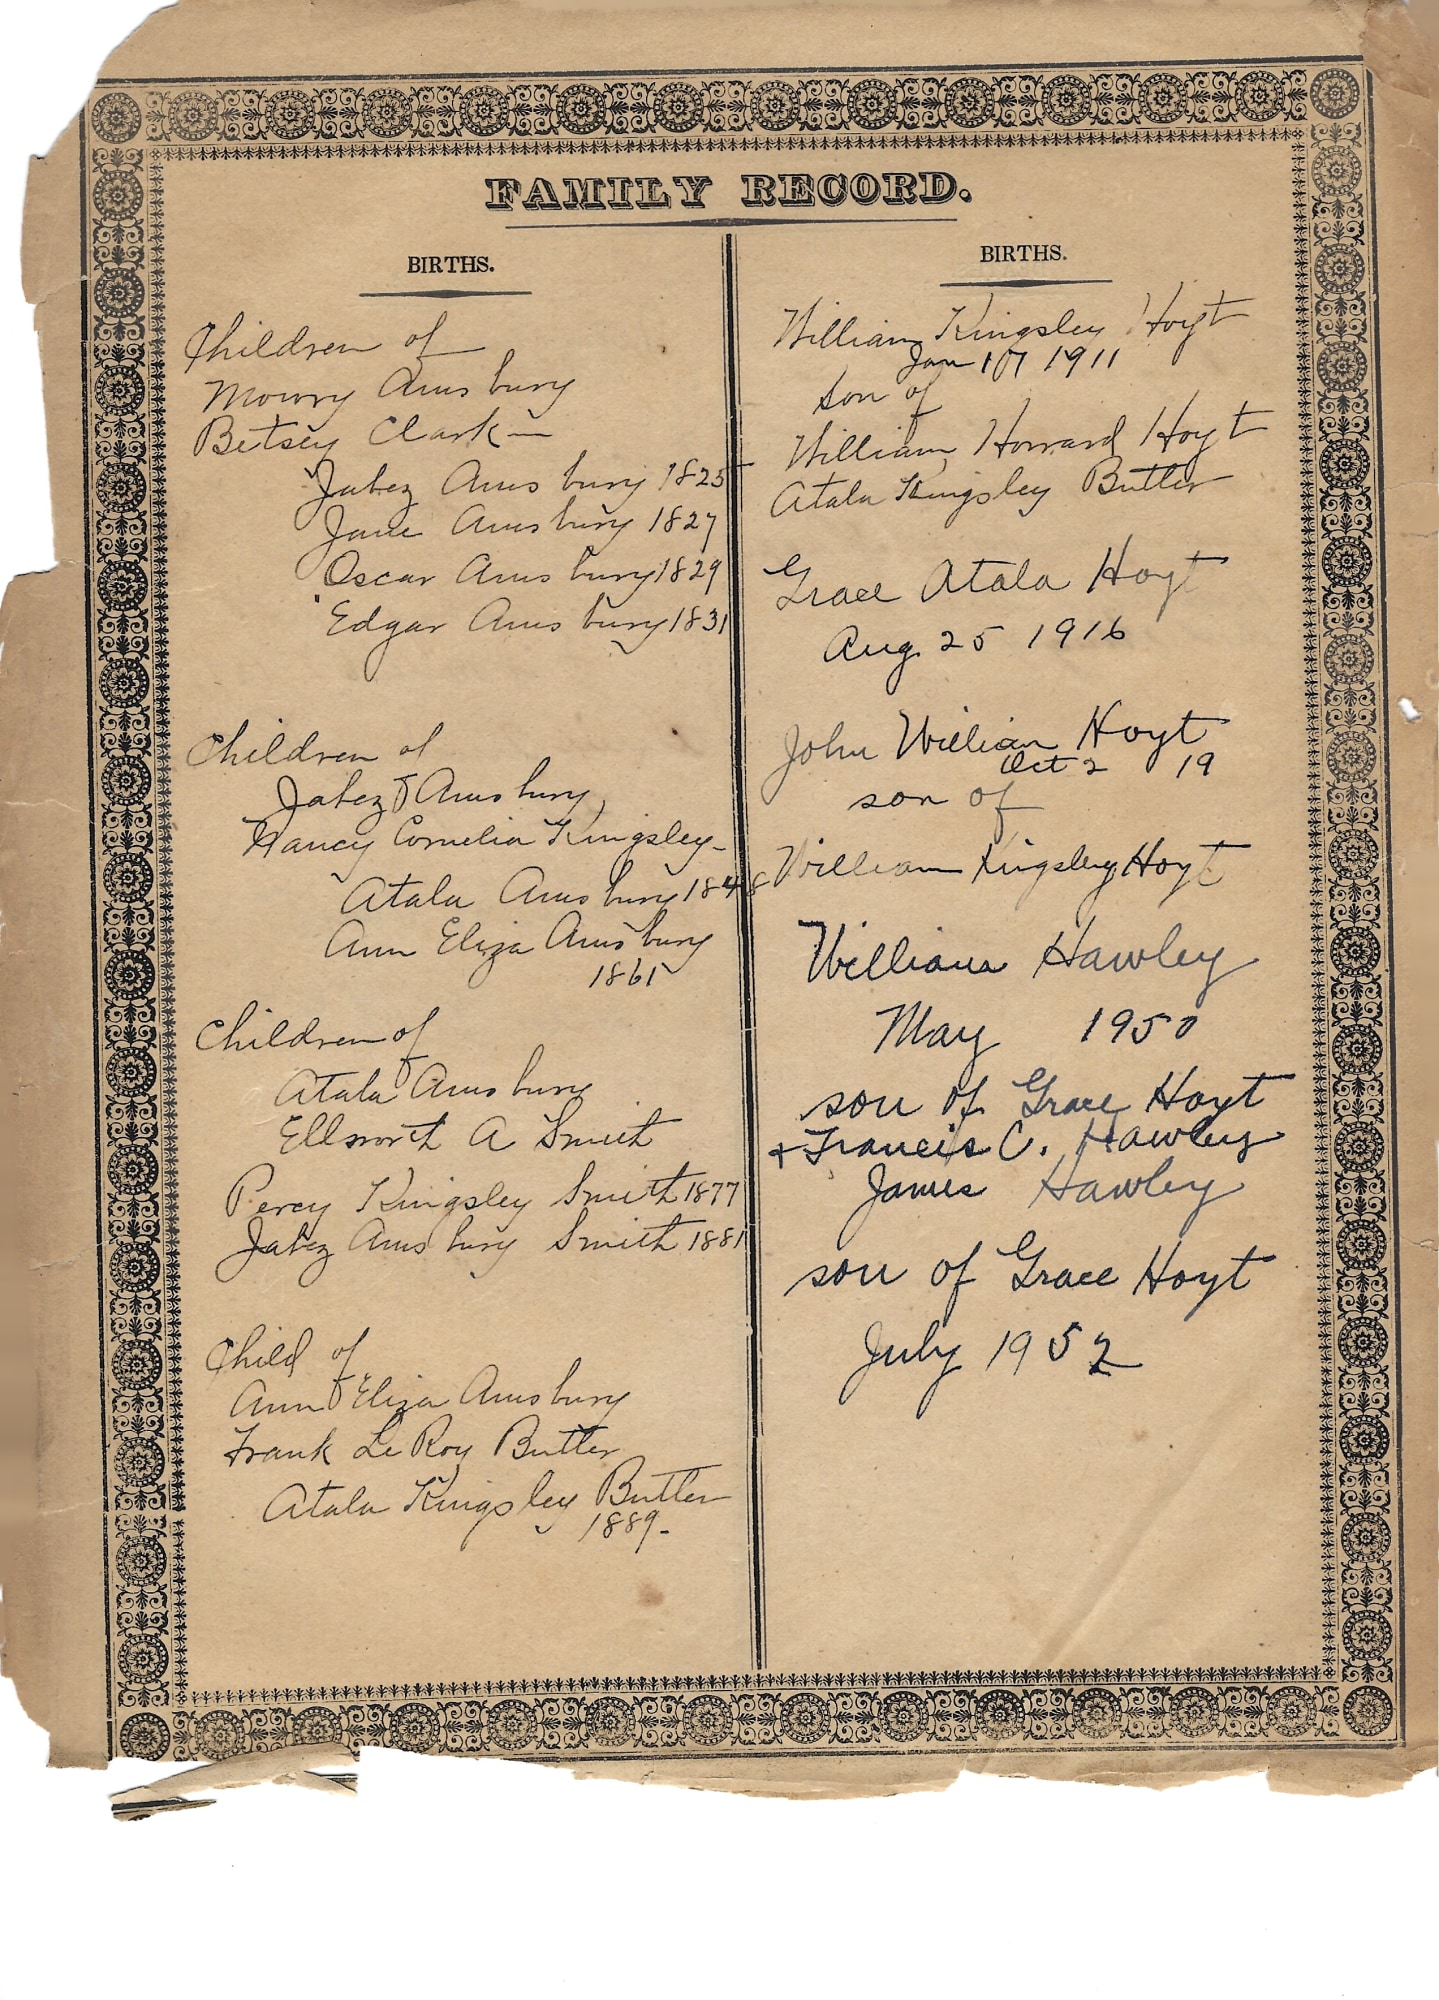 FAMILY RECORD.
BIRTHS.
Children of
Mowry Amsbury
Betsey Clark
Jabez Amsbury 1825
Jane Amsbury 1827
Oscar Amsbury 1829
Edgar Amsbury 1831
Children of
Jabez Amsbury
Nancy Cornelia Kingsley
Atala Amsbury 1848
Ann Eliza Amsbury
1861
Children of
Atala Amsbury
Ellsworth A Smith
Percy Kingsley Smith 1877
Jabez Amsbury Smith 1881
Child of
Ann Eliza Amsbury
Frank Le Roy Butler
Atala Kingsley Butler
1889
BIRTHS.
William Kingsley Hoyt
Jan 1911
son of
William Howard Hoyt
Atala Kingsley Butler
Grace Atala Hoyt
Aug 25 1916
John William Hoyt
Oct 2 19
son of
William Kingsley Hoyt
William Hawley
May 1950
son of Grace Hoyt
+ Francis C. Hawley
James Hawley
son of Grace Hoyt
July 1952